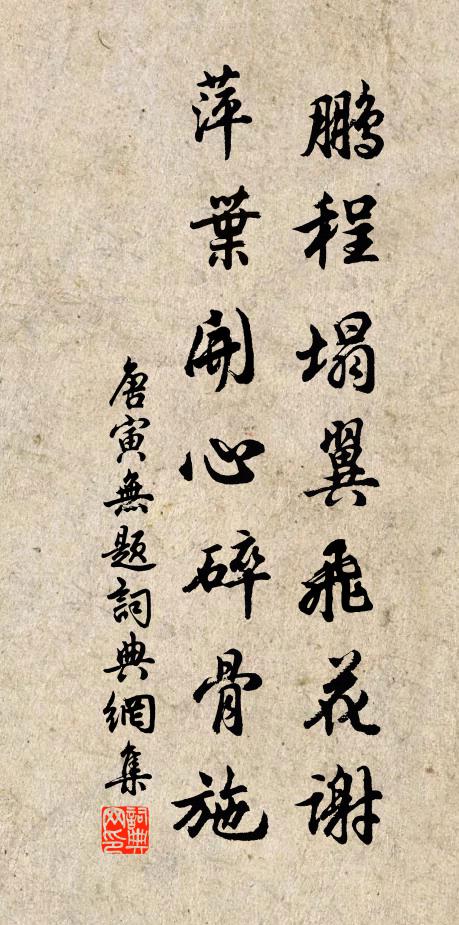 鵬程塌翼飛花謝
萍葉開心碎骨施
唐寅無題詞典網集
詞典网印